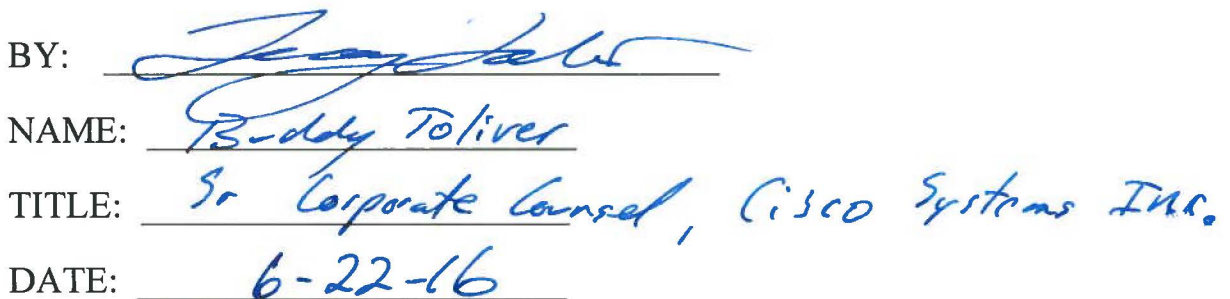 BY:
NAME: Buddy Toliver
TITLE: Sr Corporate Counsel, Cisco Systems Inc.
DATE: 6-22-16